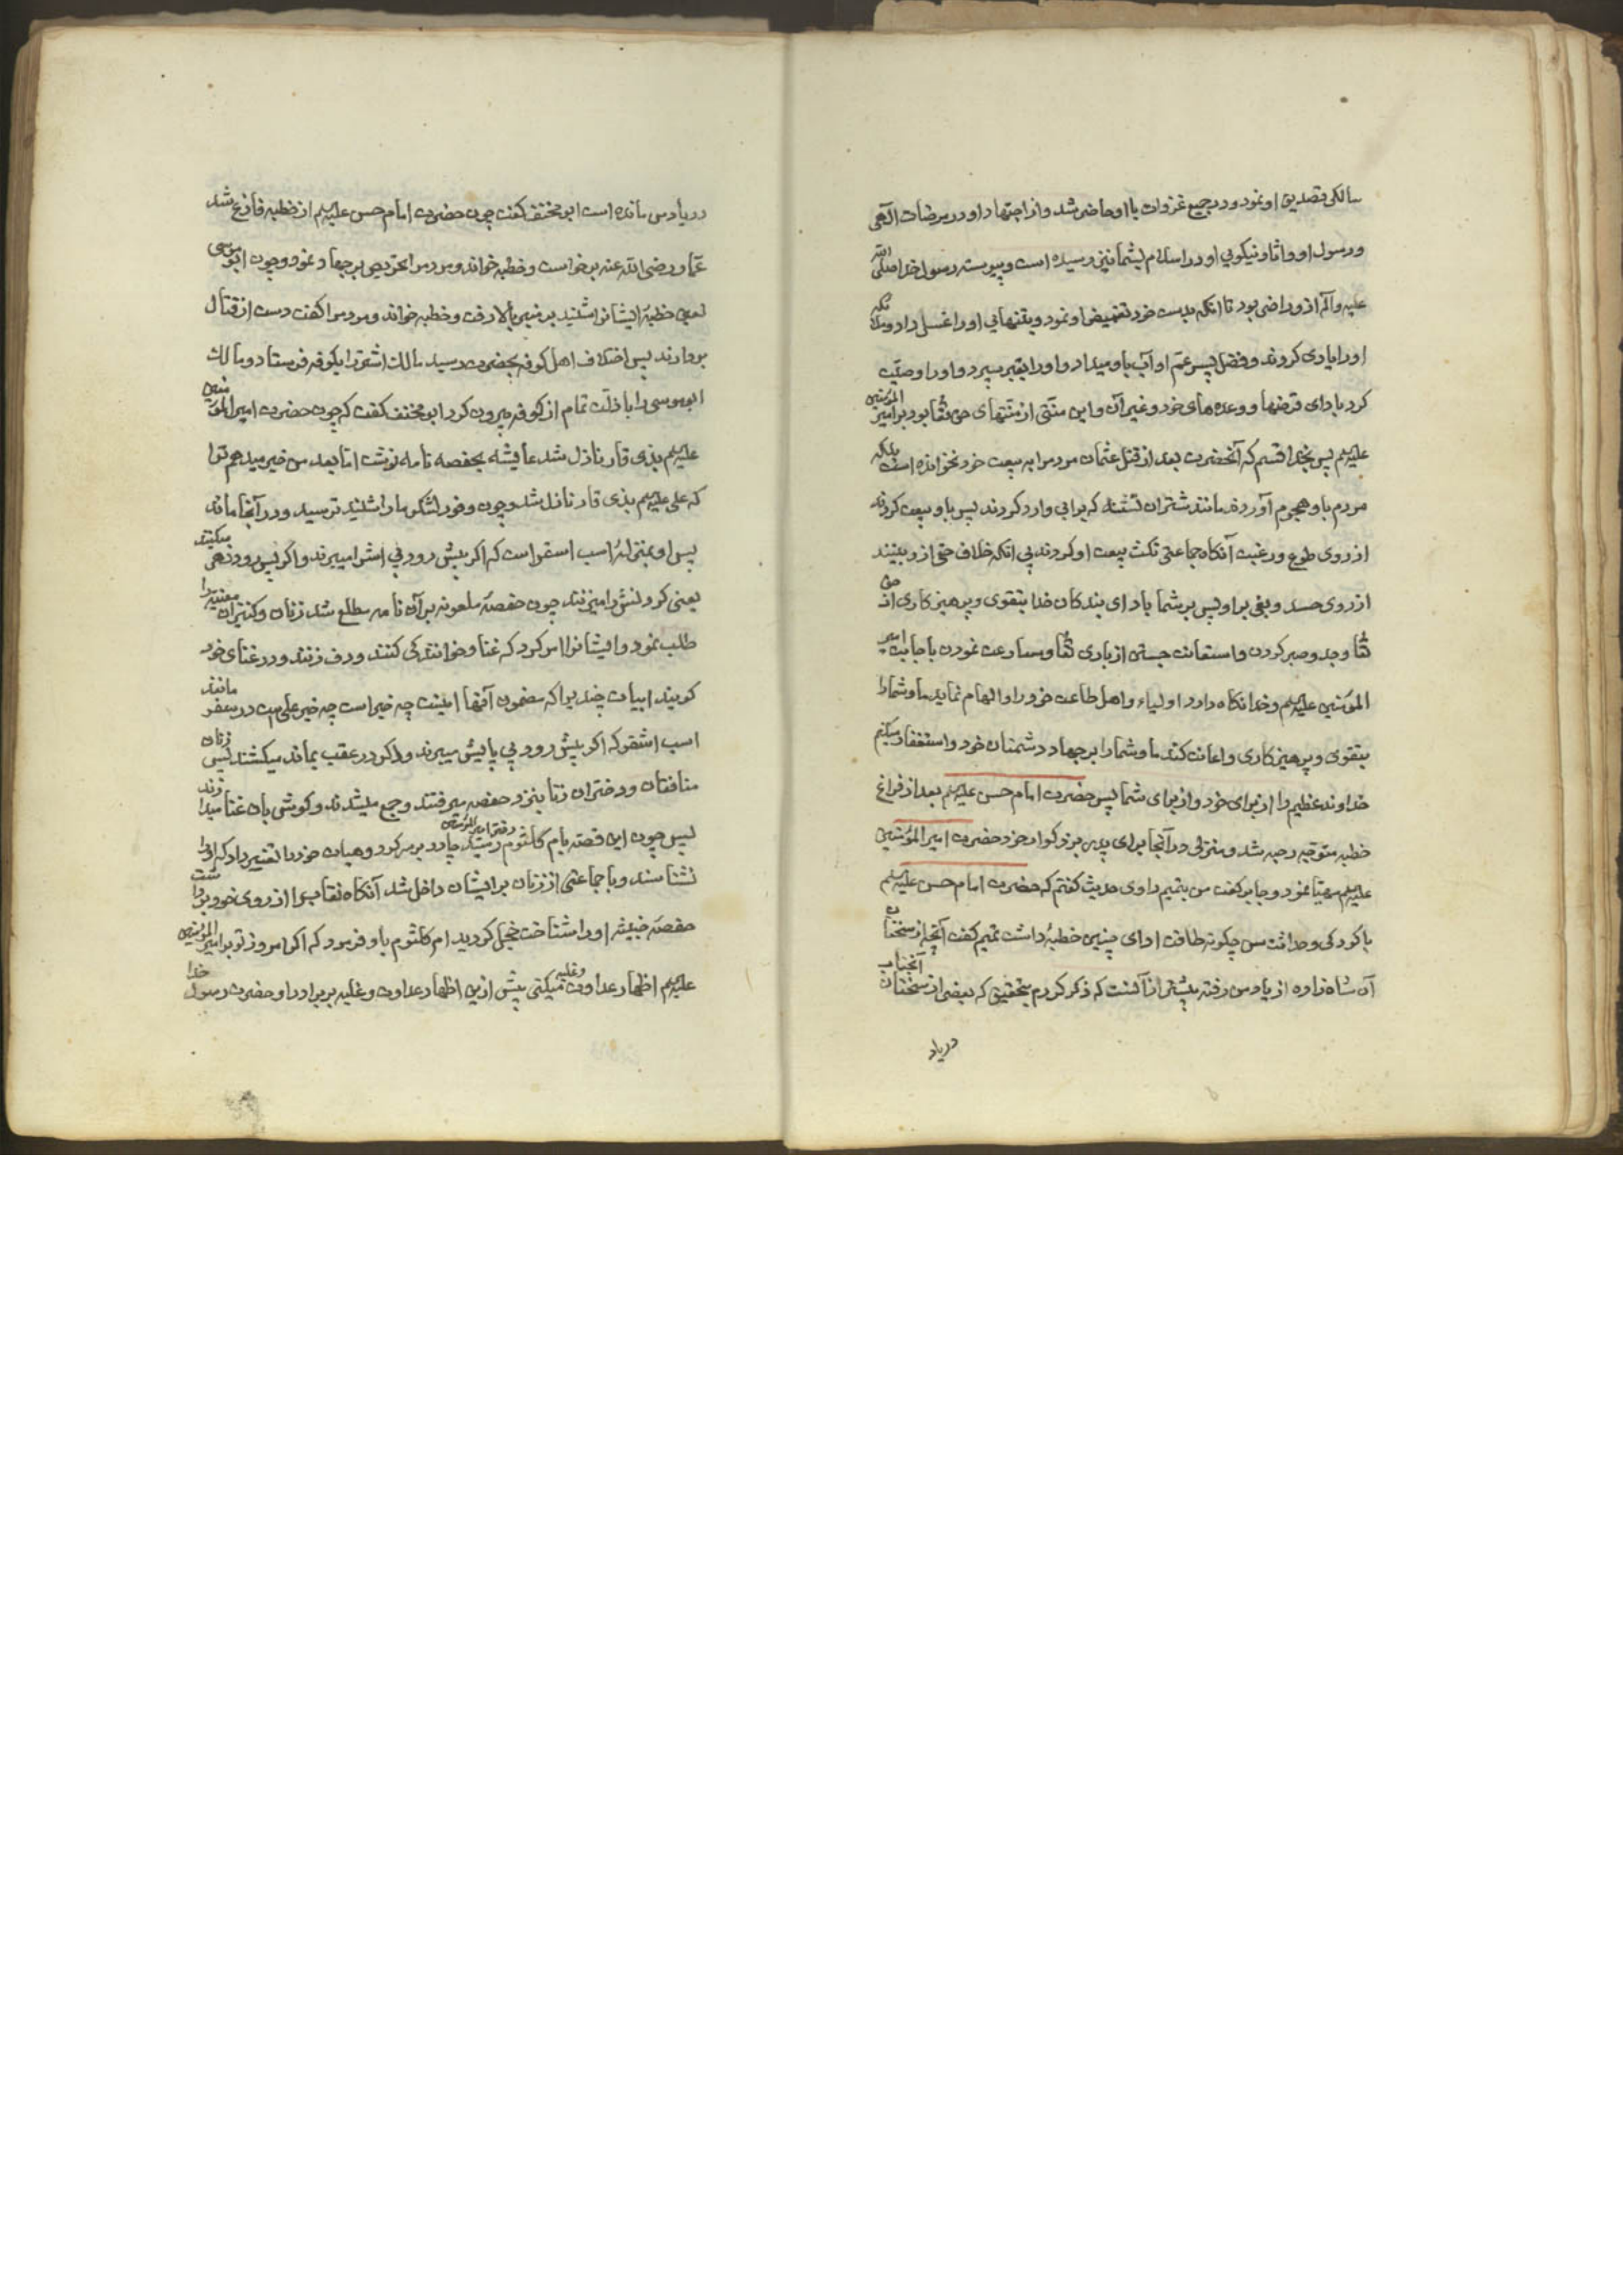 سالکی تصدیق او نمود و در جمیع غزوات با او حاضر شد و از اجتهاد او در مرضات الهی
و رسول او و اثار نیکویی او در اسلام بشما نیز رسیده است و پیوسته رسول خدا صلی الله
علیه و آله ازو راضی بود تا انکه بدست خود تغمیض او نمود و بتنهایی او را غسل داد و ملائکه
او را یاری کردند و فضل پسر عم او آب باو میداد و او را بقبر سپرد و او را وصیت
کرد بادای قرضها و وعده های خود و غیر آن و این منتی از منتهای حق تعا بود بر امیر المؤمنین
علیه السلم پس بخدا قسم که آنحضرت بعد از قتل عثمان مردم را به بیعت خود نخوانده است بلکه
مردم باو هجوم آوردند مانند شتران تشنه که برابی وارد کردند پس باو بیعت کردند
از روی طوع و رغبت آنکاه جماعتی نکث بیعت او کردند بی انکه خلاف حقی ازو بینند
از روی حسد و بغی بر او پس بر شما باد ای بندکان خدا بتقوی و پرهیزکاری از حق
تعا و جد و صبر کردن و استعانت جستن از یاری تعا و مسارعت نمودن باجابت امیر
المؤمنین علیه السلم و خدا نکاه دارد اولیاء و اهل طاعت خود را و الهام نماید ما و شما را
بتقوی و پرهیزکاری و اعانت کند ما و شما را بر جهاد دشمنان خود و استغفار میکنم
خداوند عظیم را از برای خود و از برای شما پس حضرت امام حسن علیه السلم بعد از فراغ
خطبه متوجه رحبه شد و منزلی در آنجا برای پدر بزرکوار خود حضرت امیر المؤمنین
علیه السلم مهیا نمود و جابر کفت من بتمیم راوی حدیث کفتم که حضرت امام حسن علیه السلم
با کودکی و حداثت سن چکونه طاقت ادای چنین خطبهٔ داشت تمیم کفت آنچه از سخنان
آن شاه زاده از یاد من رفته بیشتر از آنست که ذکر کردم بتحقیق که بعضی از سخنان آنجناب
در یاد
در یاد من مانده است ابو مخنف کفت چون حضرت امام حسن علیه السلم از خطبه فارغ شد
عمار رضی الله عنه برخواست و خطبه خواند و مردم را تحریص بر جهاد نمود و چون ابو موسی
لعین خطبهٔ ایشانرا شنید بر منبر بالا رفت و خطبه خواند و مردم را کفت دست از قتال
بردارند پس اختلاف اهل کوفه بحضرت رسید مالک اشتر را بکوفه فرستاد و مالک
ابو موسی را با ذلت تمام از کوفه بیرون کرد ابو مخنف کفت که چون حضرت امیر المؤمنین
علیه السلم بذی قار نازل شد عایشه بحفصه نامه نوشت اما بعد من خبر میدهم ترا
که علی علیه السلم بذی قار نازل شد و چون وفور لشکر ما را شنید ترسید و در آنجا ماند
پس او بمنزلهٔ اسب اسقر است که اکر پیش رود پی اشرا میبرند و اکر پس رود نحر میکنند
یعنی کردنش را میزنند چون حفصهٔ ملعونه بر آن نامه مطلع شد زنان و کنیزان مغنیه را
طلب نمود و ایشانرا امر کرد که غنا و خوانندکی کنند و دف زنند و در غنای خود
کویند ابیات چند برا که مضمون آنها اینست چه خبر است چه خبر علی است در سفر مانند
اسب اشقر که اکر پیش رود پی پایش میبرند و اکر در عقب بماند میکشند پس زنان
منافقان و دختران زنا بنزد حفصه میرفتند و جمع میشدند و کوش بان غنا میدادند
پس چون این قصه بام کلثوم دختر امیر المؤمنین رسید چادر بر سر کرد و هیات خود را تغییر داد که او را
نشناسند و با جماعتی از زنان بر ایشان داخل شد آنکاه نقاب را از روی خود برداشت
حفصهٔ خبیثه او را شناخت خجل کردید ام کلثوم باو فرمود که اکر امروز تو بر امیر المؤمنین
علیه السلم اظهار عداوت و غلبه میکنی پیش ازین اظهار عداوت و غلبه بر برادر او حضرت رسول خدا